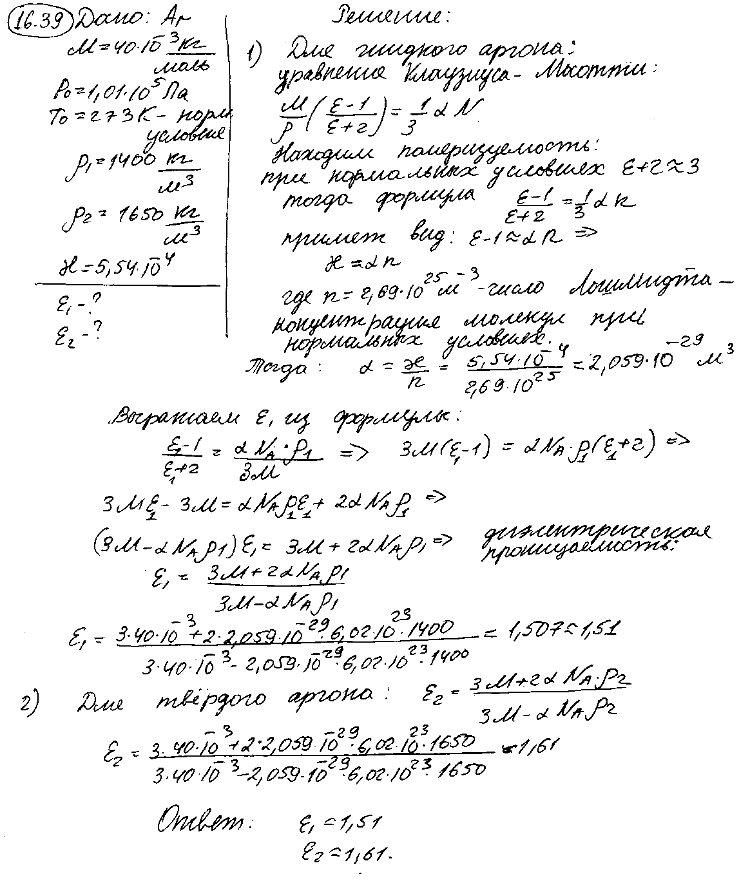 16.39 Дано: Ar
M = 40·10^-3 кг/моль
P0 = 1,01·10^5 Па
T0 = 273 К - норм.
условие
ρ1 = 1400 кг/м^3
ρ2 = 1650 кг/м^3
ϰ = 5,54·10^-4
ε1 - ?
ε2 - ?
Решение:
1) Для жидкого аргона:
уравнение Клаузиуса - Мосотти:
M/ρ ((ε-1)/(ε+2)) = 1/3 αN
Находим поляризуемость:
при нормальных условиях ε+2≈3
тогда формула (ε-1)/(ε+2) = 1/3 αn
примет вид: ε-1≈αn =>
ϰ = αn
где n = 2,69·10^25 м^-3 - число Лошмидта -
концентрация молекул при
нормальных условиях.
Тогда: α = ϰ/n = 5,54·10^-4/2,69·10^25 = 2,059·10^-29 м^3
Выражаем ε1 из формулы:
(ε1-1)/(ε1+2) = αNA·ρ1/3M => 3M(ε1-1) = αNA·ρ1(ε1+2) =>
3Mε1 - 3M = αNAρ1ε1 + 2αNAρ1 =>
(3M-αNAρ1)ε1 = 3M+2αNAρ1 => диэлектрическая
проницаемость:
ε1 = (3M+2αNAρ1)/(3M-αNAρ1)
ε1 = (3·40·10^-3+2·2,059·10^-29·6,02·10^23·1400)/(3·40·10^-3-2,059·10^-29·6,02·10^23·1400) = 1,507≈1,51
2) Для твёрдого аргона: ε2 = (3M+2αNA·ρ2)/(3M-αNAρ2)
ε2 = (3·40·10^-3+2·2,059·10^-29·6,02·10^23·1650)/(3·40·10^-3-2,059·10^-29·6,02·10^23·1650) = 1,61
Ответ: ε1 = 1,51
ε2 = 1,61.